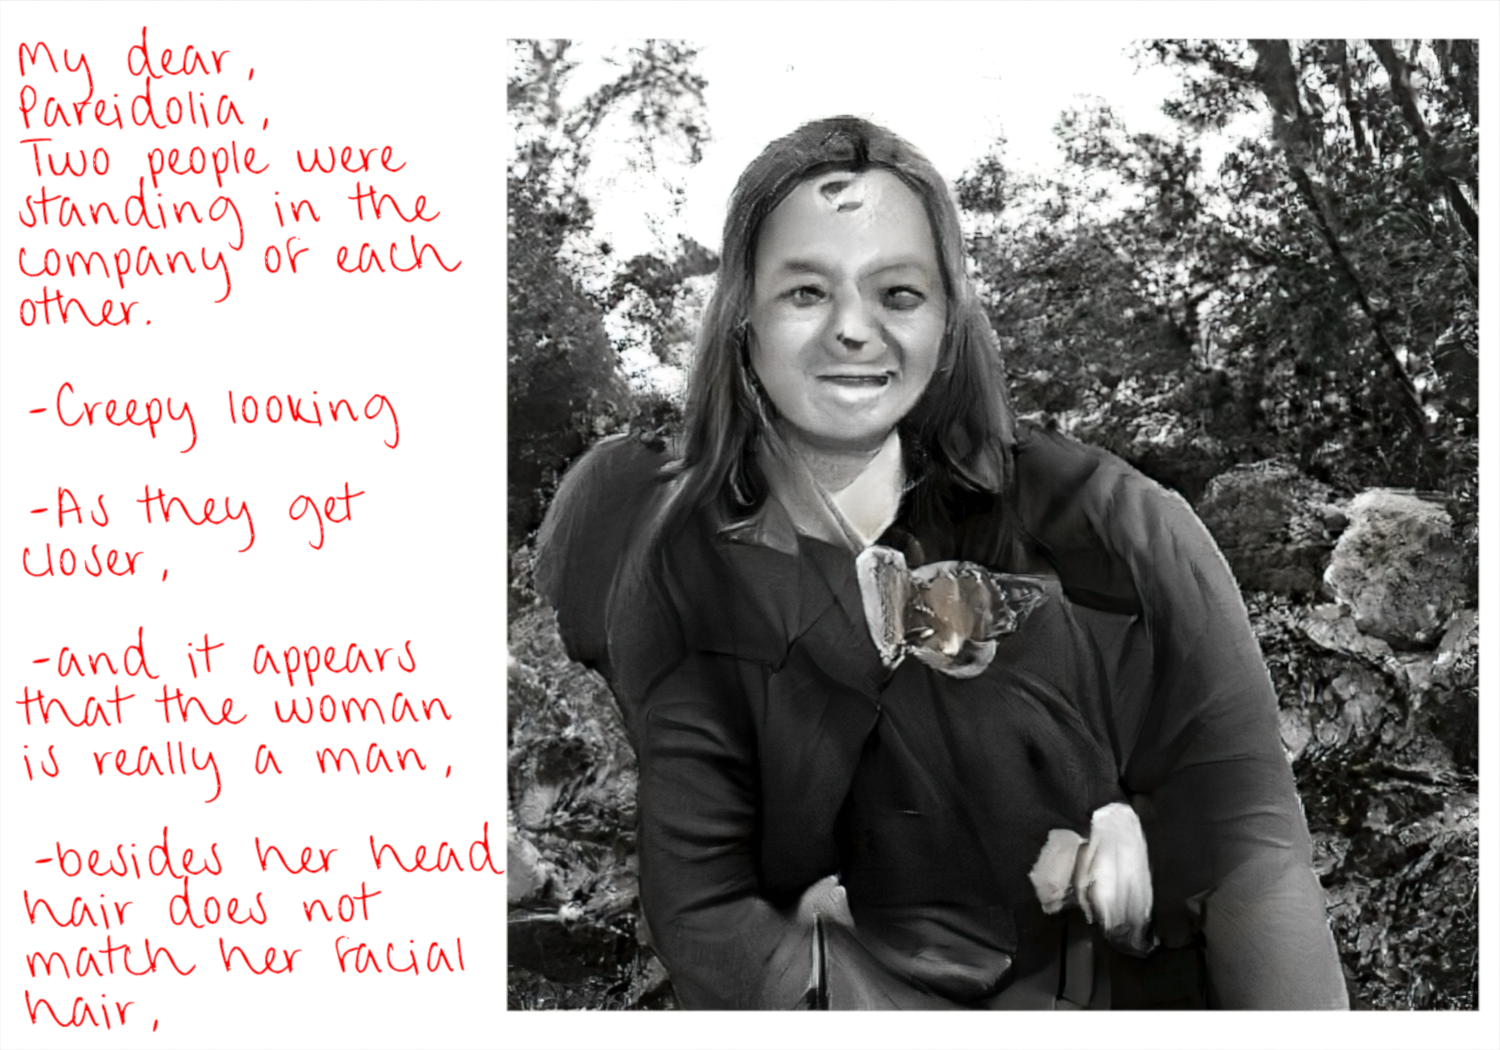 My dear,
Pareidolia,
Two people were
standing in the
company of each
other.
-Creepy looking
-As they get
closer,
-and it appears
that the woman
is really a man,
-besides her head
hair does not
match her facial
hair,